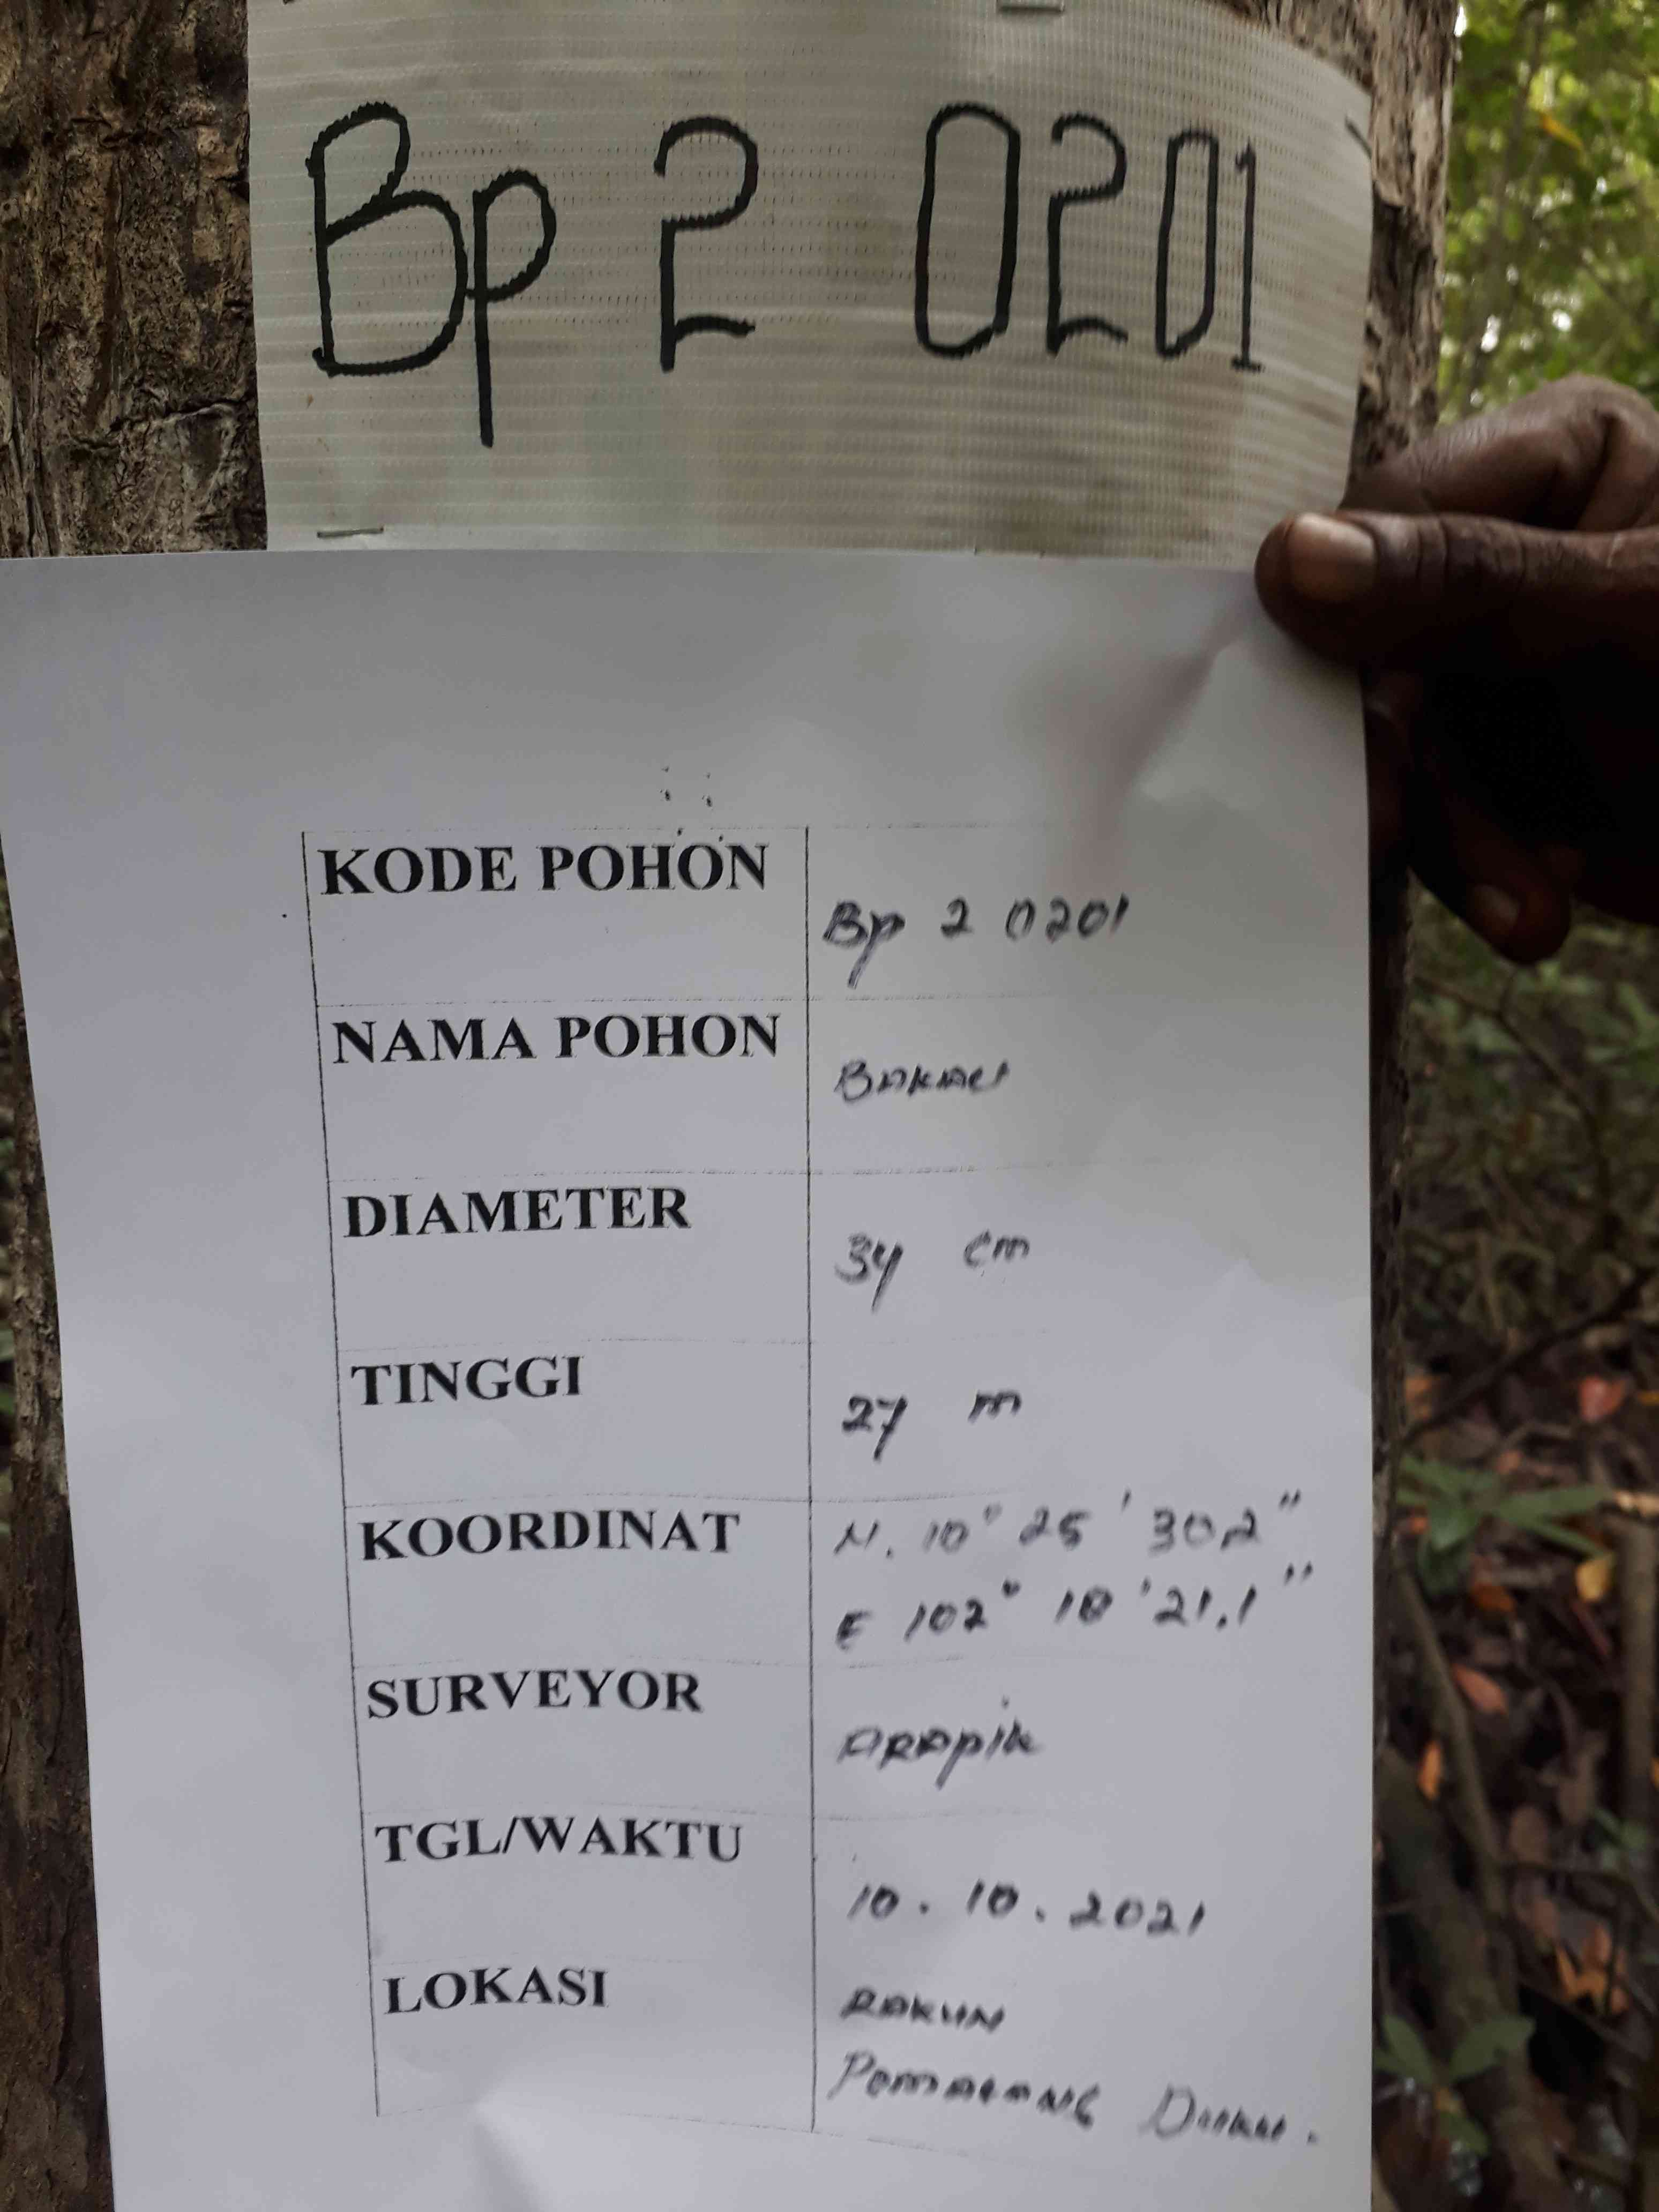 Bp 2 0201
KODE POHON
Bp 2 0201
NAMA POHON
BAKAU
DIAMETER
34 cm
TINGGI
27 m
KOORDINAT
N. 10° 25' 30,2"
E 102° 18' 21,1"
SURVEYOR
ARAPIK
TGL/WAKTU
10. 10. 2021
LOKASI
RAKUN
PEMATANG DUKU.